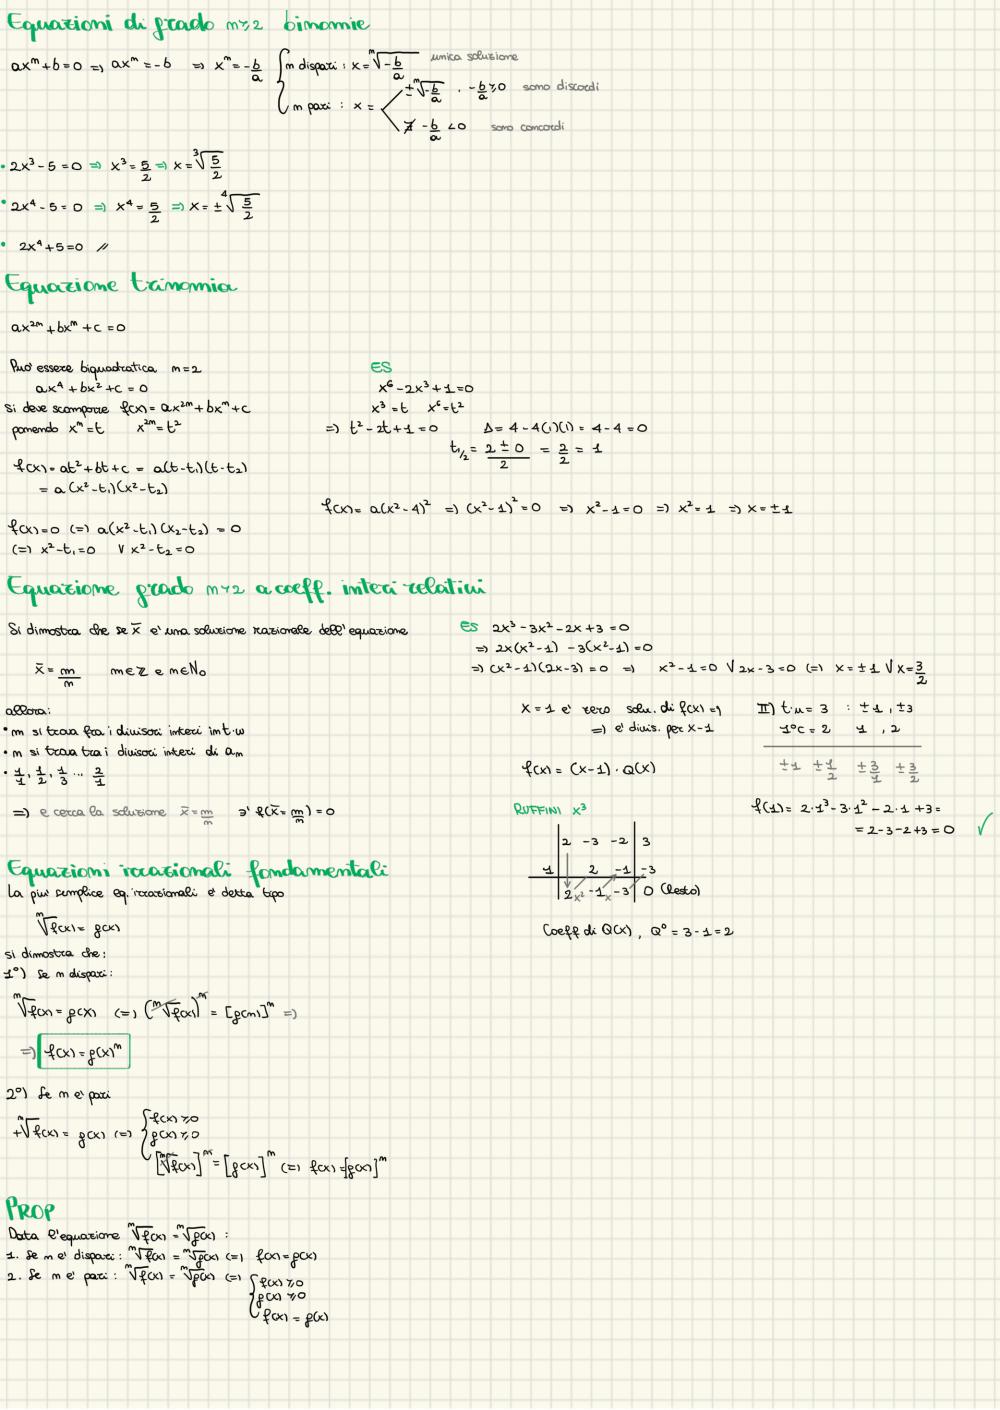 Equazioni di grado n≥2 binomie
ax^n + b = 0 => ax^n = -b => x^n = -b/a { n dispari : x = ⁿ√(-b/a) unica soluzione
n pari : x = < ±ⁿ√(-b/a) . -b/a ≥ 0 sono discordi
∄ -b/a < 0 sono concordi
• 2x³ - 5 = 0 => x³ = 5/2 => x = ³√(5/2)
• 2x⁴ - 5 = 0 => x⁴ = 5/2 => x = ± ⁴√(5/2)
• 2x⁴ + 5 = 0 //
Equazione trinomia
ax²ⁿ + bxⁿ + c = 0
Può essere biquadratica n=2
ax⁴ + bx² + c = 0
si deve scomporre f(x) = ax²ⁿ + bxⁿ + c
ponendo xⁿ = t x²ⁿ = t²
f(x) = at² + bt + c = a(t-t₁)(t-t₂)
= a(x²-t₁)(x²-t₂)
f(x)=0 (=) a(x²-t₁)(x₂-t₂) = 0
(=) x²-t₁=0 V x²-t₂=0
ES
x⁶ - 2x³ + 1 = 0
x³ = t x⁶ = t²
=) t² - 2t + 1 = 0 Δ = 4 - 4(1)(1) = 4 - 4 = 0
t₁/₂ = (2 ± 0)/2 = 2/2 = 1
f(x) = a(x²-4)² =) (x²-1)² = 0 =) x²-1=0 =) x²=1 =) x=±1
Equazione grado n>2 a coeff. interi relativi
Si dimostra che se x̄ e' una soluzione razionale dell'equazione
x̄ = m/n m∈Z e n∈N₀
allora:
• m si trova fra i divisori interi im t.w
• n si trova tra i divisori interi di aₙ
• 1/1, 1/2, 1/3 ... 2/1
=) e cerca la soluzione x̄ = m/n ∋' f(x̄ = m/n) = 0
ES 2x³ - 3x² - 2x + 3 = 0
=) 2x(x²-1) - 3(x²-1) = 0
=) (x²-1)(2x-3) = 0 =) x²-1=0 V 2x-3=0 (=) x=±1 V x=3/2
x=1 e' zero solu. di f(x) =)
=) e' divis. per x-1
f(x) = (x-1) · Q(x)
II) t.n = 3 : ±1, ±3
1°c = 2 1, 2
±1 ±1/2 ±3/1 ±3/2
f(1) = 2·1³ - 3·1² - 2·1 + 3 =
= 2-3-2+3 = 0 ✓
RUFFINI x³
2 -3 -2 | 3
1 2 -1 | -3
2x² -1x -3 | 0 (Resto)
Coeff di Q(x), Q° = 3-1 = 2
Equazioni irrazionali fondamentali
La piu' semplice eq. irrazionali e' detta tipo
ⁿ√f(x) = g(x)
si dimostra che:
1°) Se n dispari:
ⁿ√f(x) = g(x) (=) (ⁿ√f(x))ⁿ = [g(x)]ⁿ =)
=) f(x) = g(x)ⁿ
2°) Se n e' pari
+ⁿ√f(x) = g(x) (=) { f(x) ≥ 0
g(x) ≥ 0
[ⁿ√f(x)]ⁿ = [g(x)]ⁿ (=) f(x) = [g(x)]ⁿ
PROP
Data l'equazione ⁿ√f(x) = ⁿ√g(x) :
1. Se n e' dispari : ⁿ√f(x) = ⁿ√g(x) (=) f(x) = g(x)
2. Se n e' pari : ⁿ√f(x) = ⁿ√g(x) (=) { f(x) ≥ 0
g(x) ≥ 0
f(x) = g(x)